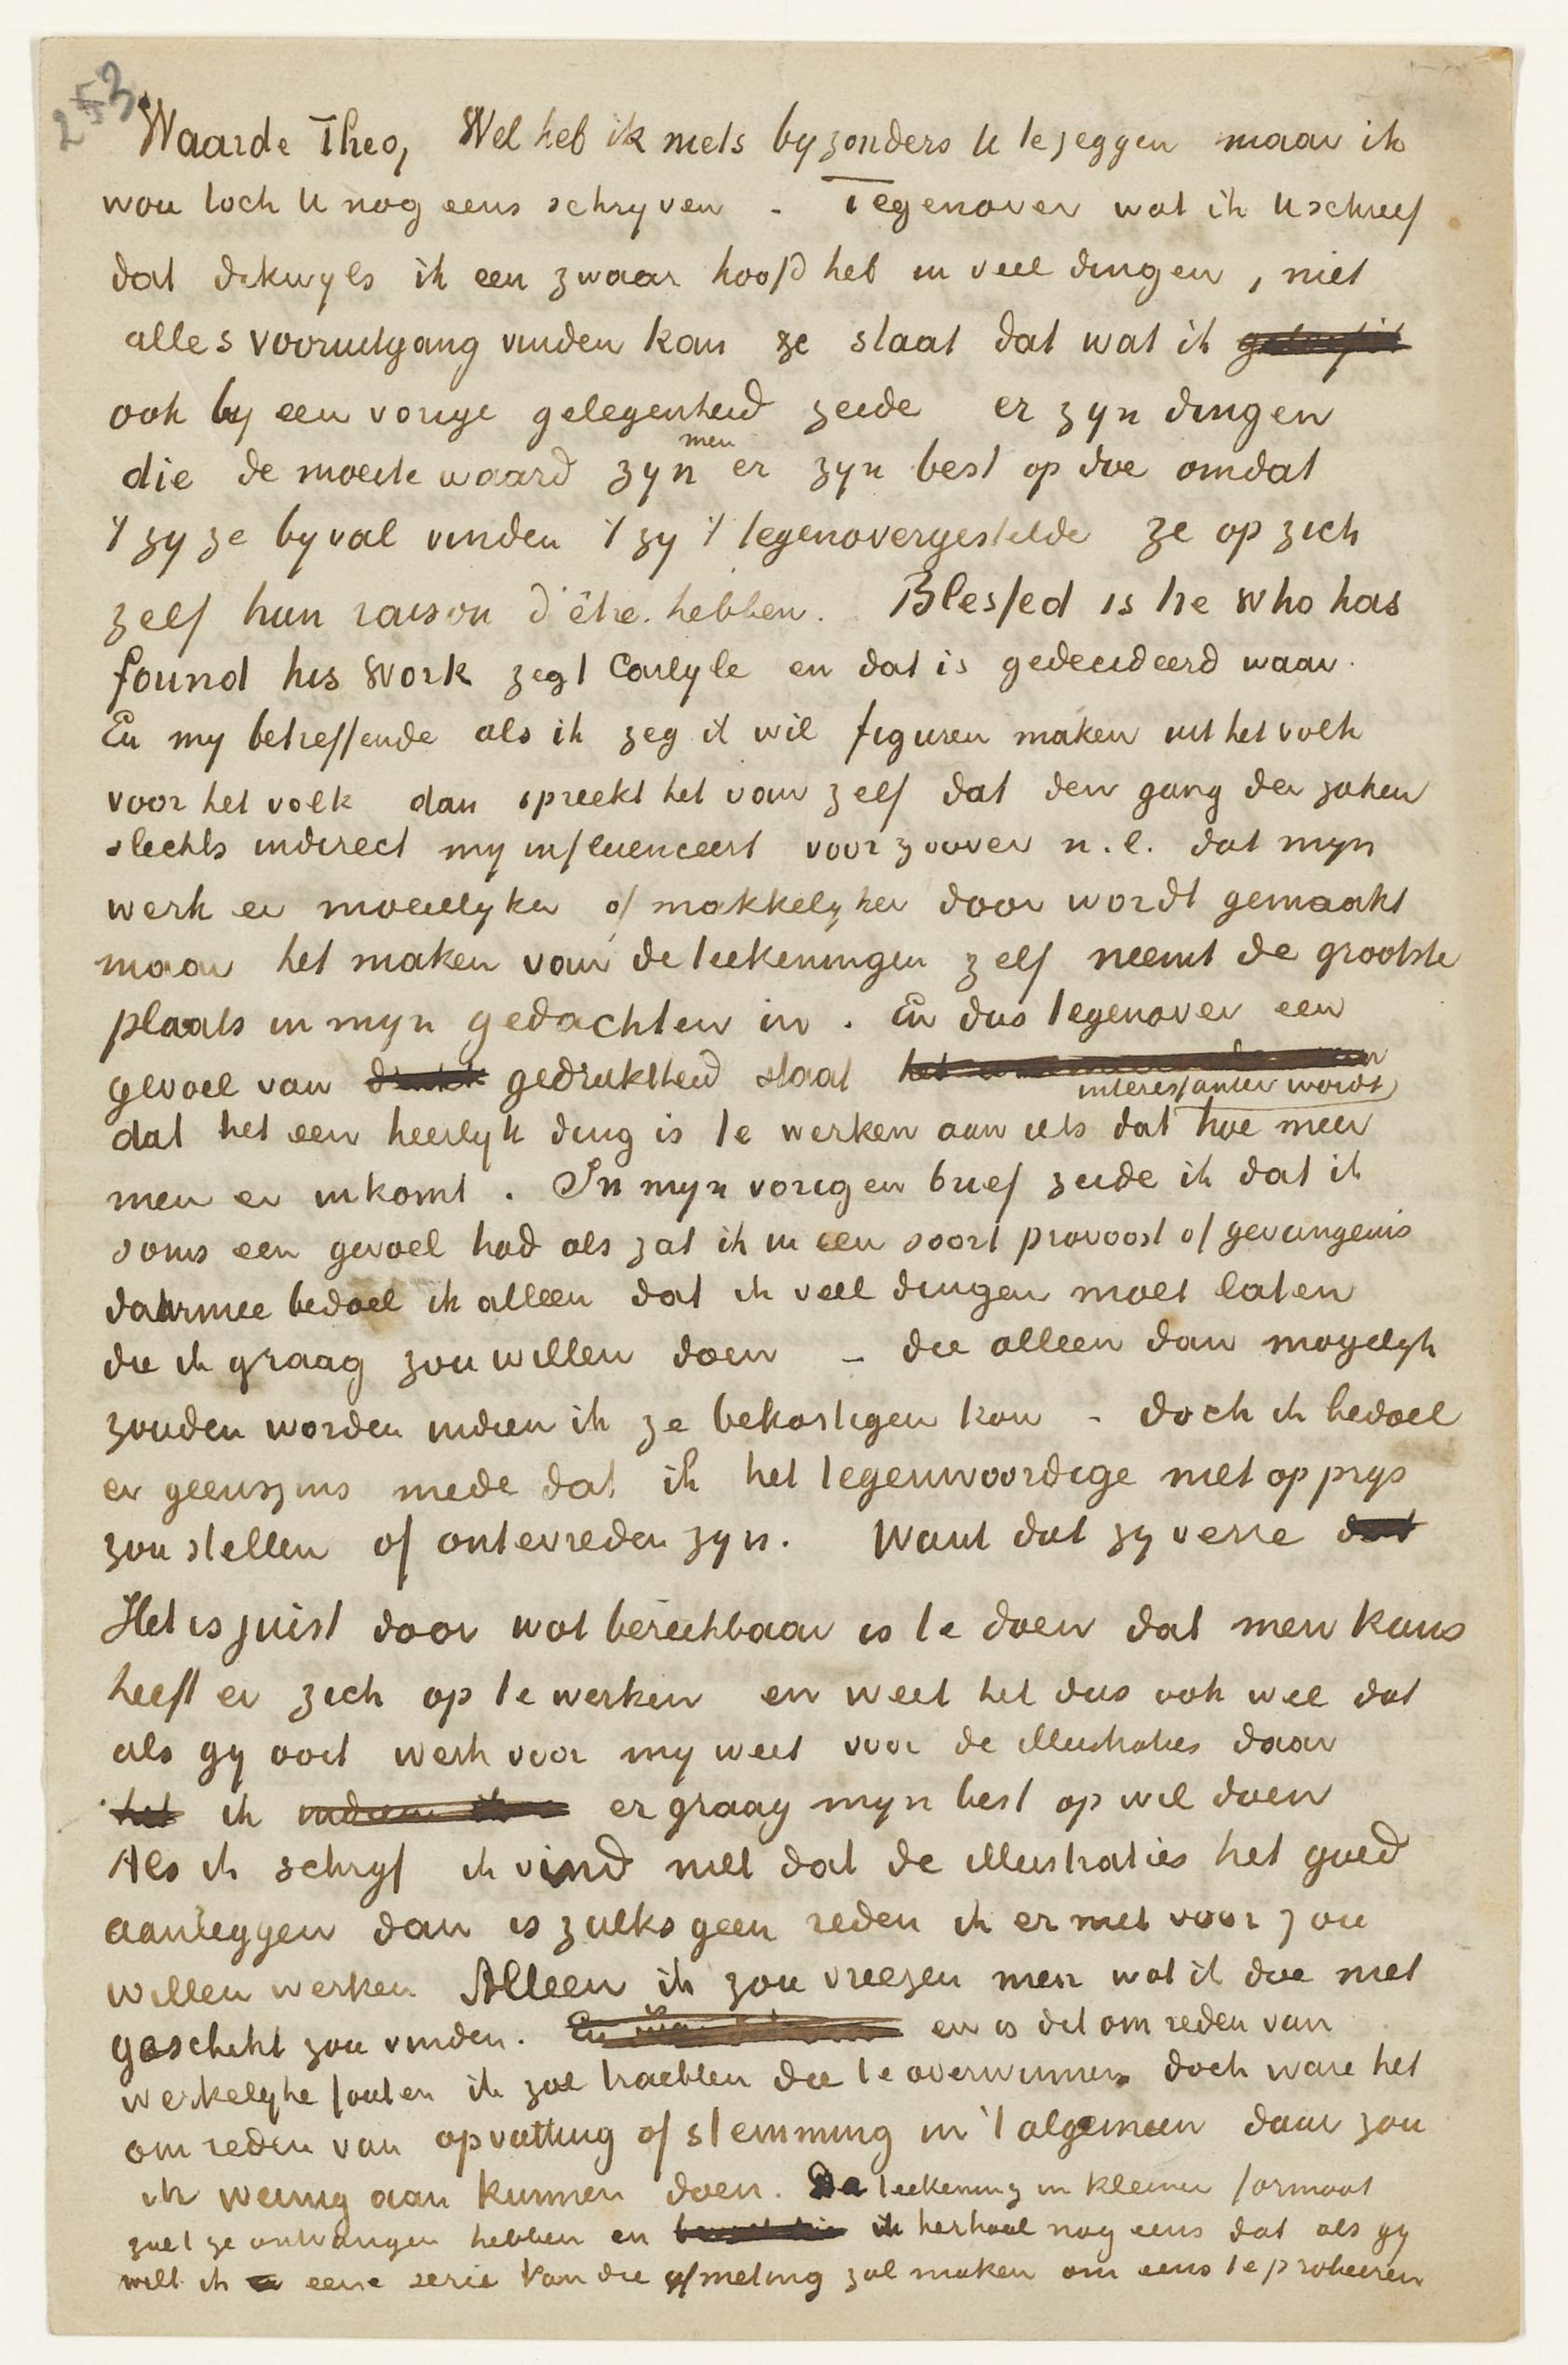 253
Waarde Theo, Wel heb ik niets byzonders U te zeggen maar ik
wou toch U nog eens schryven - Tegenover wat ik U schreef
dat dikwyls ik een zwaar hoofd heb in veel dingen, niet
alles vooruitgang vinden kan ze staat dat wat ik
ook by een vorige gelegenheid zeide er zyn dingen
men
die de moeite waard zyn er zyn best op doe omdat
't zy ze byval vinden 't zy 't tegenovergestelde ze op zich
zelf hun raison d'être hebben. Blessed is he who has
found his work zegt Carlyle en dat is gedecideerd waar.
En my betreffende als ik zeg ik wil figuren maken uit het volk
voor het volk dan spreekt het van zelf dat den gang der zaken
slechts indirect my influenceert voor zoover n.l. dat myn
werk er moeielyker of makkelyker door wordt gemaakt
maar het maken van de teekeningen zelf neemt de grootste
plaats in myn gedachten in. En dus tegenover een
gevoel van gedruktheid staat
interessanter wordt
dat het een heerlyk ding is te werken aan iets dat hoe meer
men er inkomt. In myn vorigen brief zeide ik dat ik
soms een gevoel had als zat ik in een soort provoost of gevangenis
daarmee bedoel ik alleen dat ik veel dingen moet laten
die ik graag zou willen doen - die alleen dan mogelyk
zouden worden indien ik ze bekostigen kon - doch ik bedoel
er geenszins mede dat ik het tegenwoordige niet op prys
zou stellen of ontevreden zyn. Want dat zy verre dat
Het is juist door wat bereikbaar is te doen dat men kans
heeft er zich op te werken en weet het dus ook wel dat
als gy ooit werk voor my weet voor de illustraties daar
het ik indien ik er graag myn best op wil doen
Als ik schryf ik vind niet dat de illustraties het goed
aanleggen dan is zulks geen reden ik er niet voor zou
willen werken Alleen ik zou vreezen men wat ik doe niet
geschikt zou vinden. en is dit om reden van
werkelyke fouten ik zal trachten die te overwinnen doch ware het
om reden van opvatting of stemming in 't algemeen daar zou
ik weinig aan kunnen doen. De teekening in kleiner formaat
zult ge ontvangen hebben en ik herhaal nog eens dat als gy
wilt ik eene serie van die afmeting zal maken om eens te probeeren